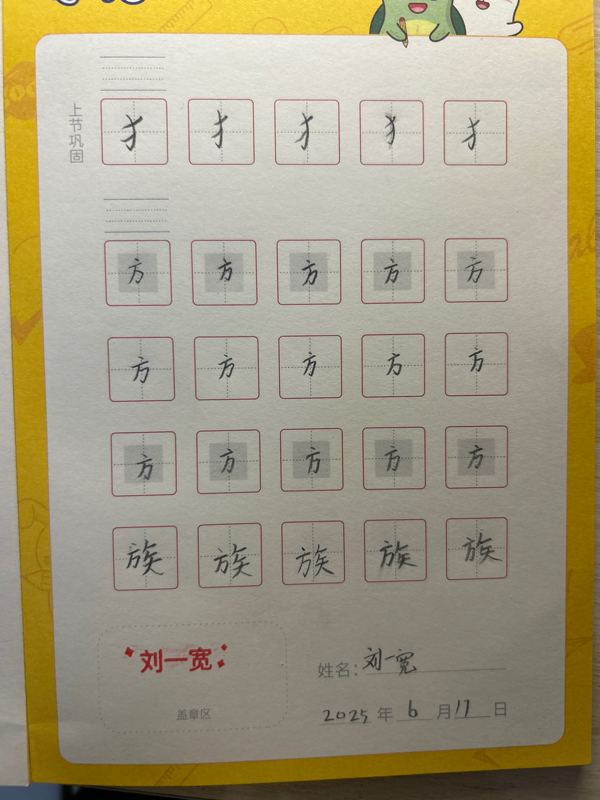 上节巩固
扌 扌 扌 扌 扌
方 方 方 方 方
方 方 方 方 方
方 方 方 方 方
族 族 族 族 族
刘一宽
盖章区
姓名: 刘一宽
2025 年 6 月 17 日